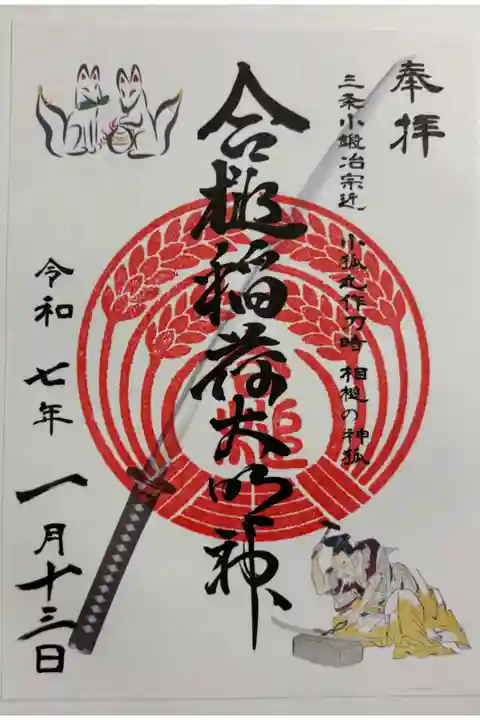 奉拝
三条小鍛冶宗近 小狐丸作刀時 相槌の神狐
合槌稲荷大明神
槌
令和七年 一月十三日